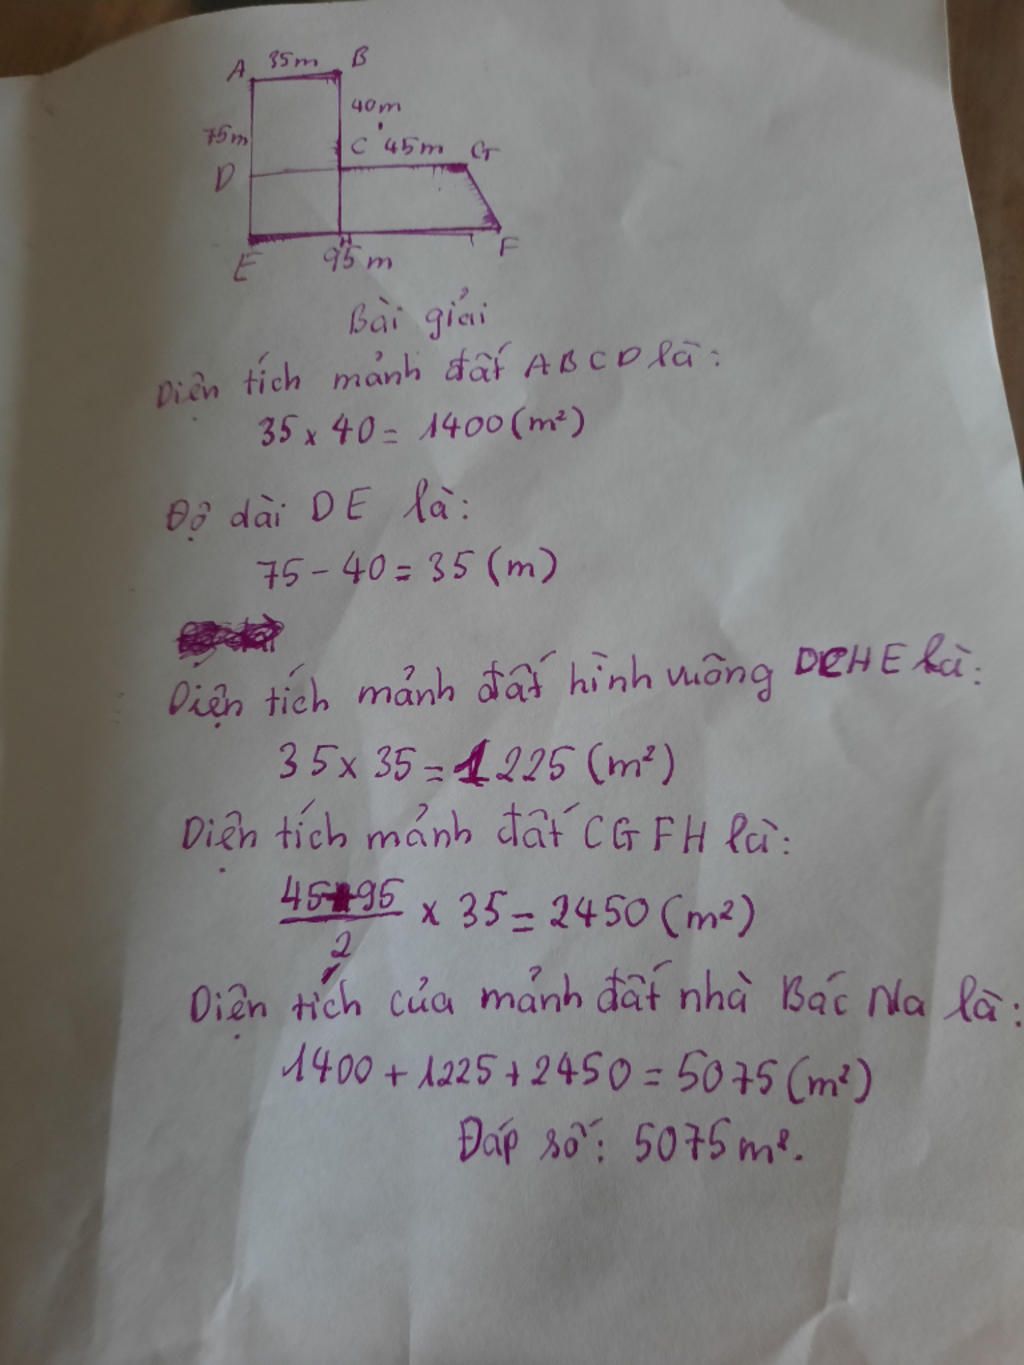 A 35m B
75m
40m
C 45m G
D
E
H
95m
F
Bài giải
Diện tích mảnh đất ABCD là:
35 x 40 = 1400 (m²)
Độ dài DE là:
75 - 40 = 35 (m)
Diện tích mảnh đất hình vuông DCHE là:
35 x 35 = 1225 (m²)
Diện tích mảnh đất CGFH là:
45+95
2
x 35 = 2450 (m²)
Diện tích của mảnh đất nhà Bác Na là:
1400 + 1225 + 2450 = 5075 (m²)
Đáp số: 5075 m².